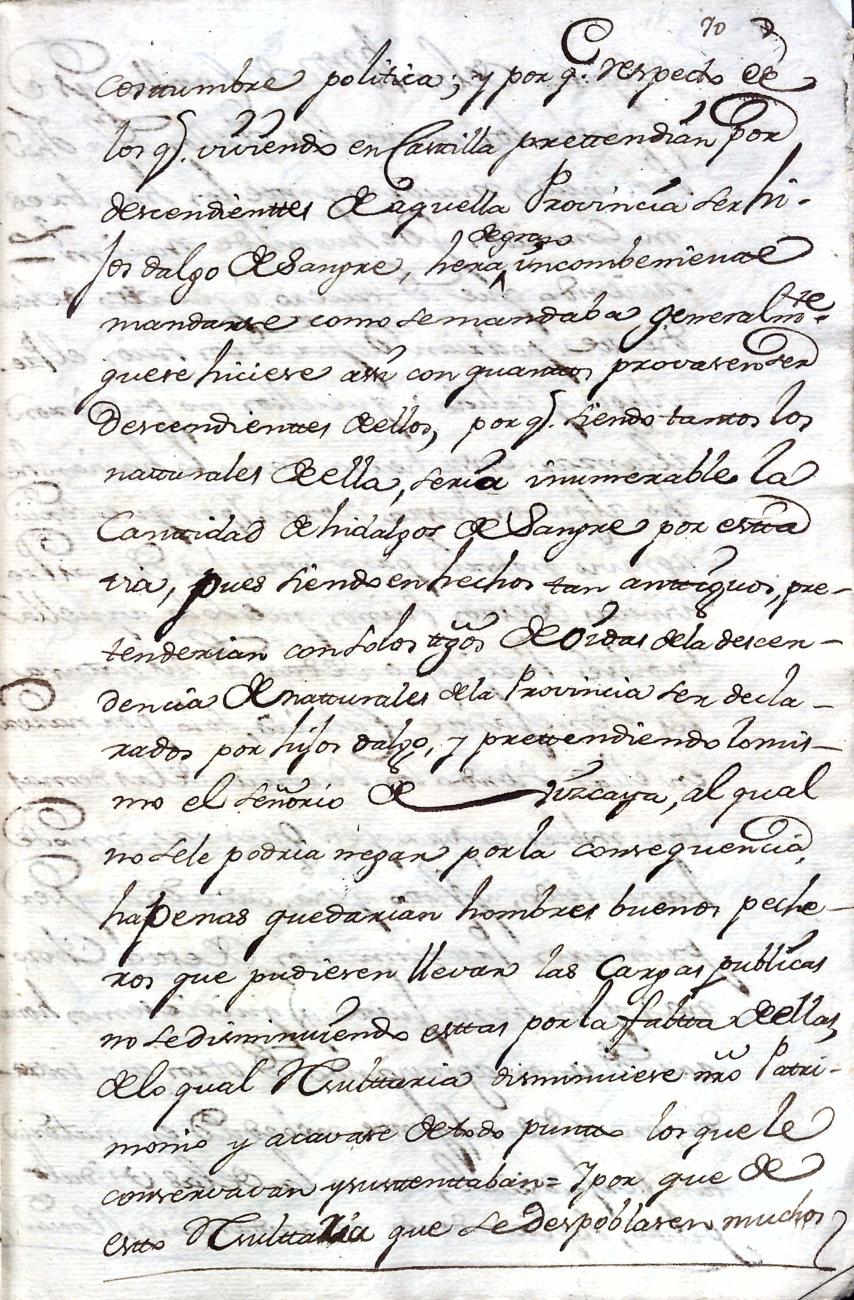 70
costtumbre politica; y por q.e respecto de
los q.e viviendo en Casttilla prettendian por
descendienttes de aquella Provincia ser hi-
jos dalgo de Sangre, hera ^de gran^ incombenientte
mandarse como se mandaba generalm.te
que se hiciese assi con quanttos provasen ser
Descendienttes de ellos, por q.e siendo tantos los
natturales de ella, seria inumerable la
Canttidad de hidalgos de Sangre por estta
via, pues siendo en hechos tan anttiguos, pre-
tenderian con solos ttgôs de Oidas de la descen-
dencia de natturales de la Provincia ser decla-
rados por hijos dalgo, y prettendiendo lo mis-
mo el señorio de Vizcaya, al qual
no se le podria negar por la consequencia,
hapenas quedarian hombres buenos peche-
ros que pudiesen llevar las Cargas publicas
no se disminuiendo esttas por la faltta de ellas,
de lo qual Resulttaria disminuiese nrô Patri-
monio y acavase de todo puntto los que le
conservavan y susttenttaban = Y por que de
estto Resulttaria que se Despoblasen muchos